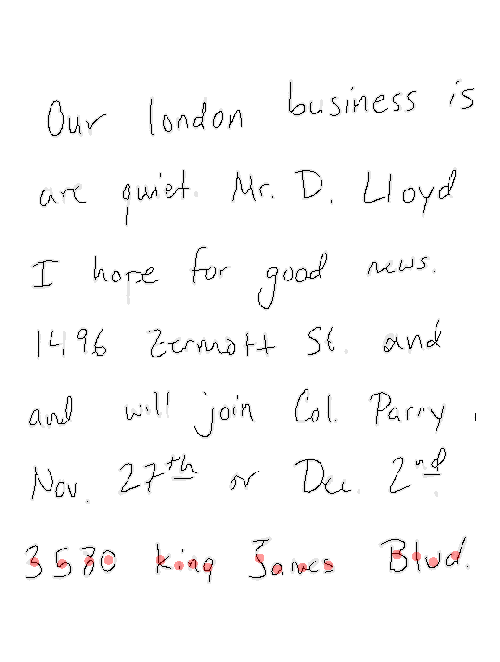 Our london business is
are quiet. Mr. D. Lloyd
I hope for good news.
1496 Zermott St. and
and will join Col. Parry,
Nov. 27th or Dec. 2nd
3580 King James Blvd.